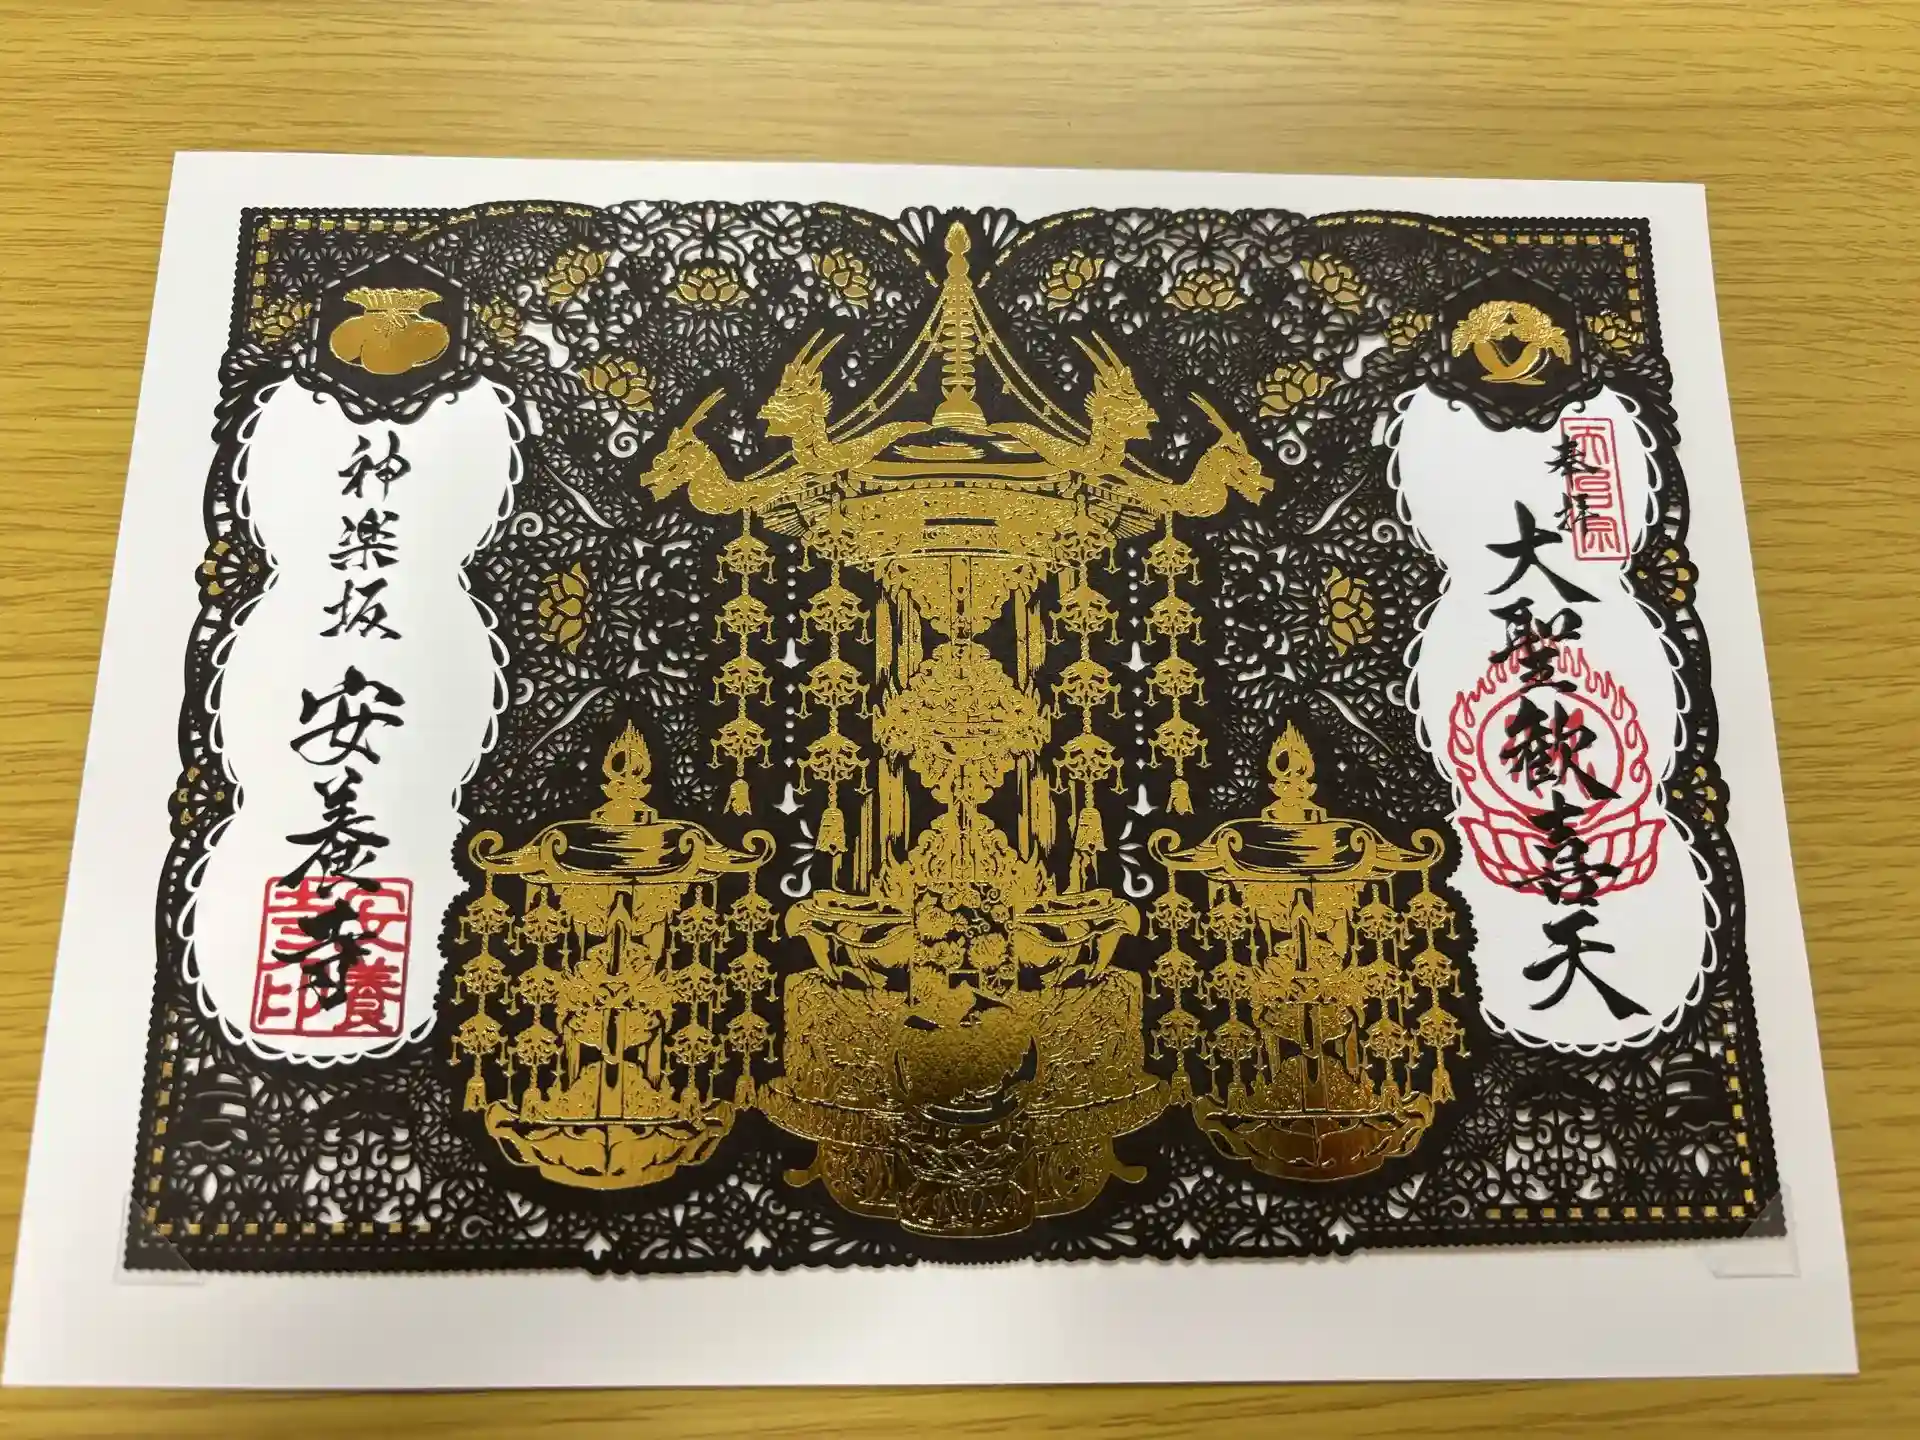 奉拝
大聖歓喜天
神楽坂 安養寺
安養寺印